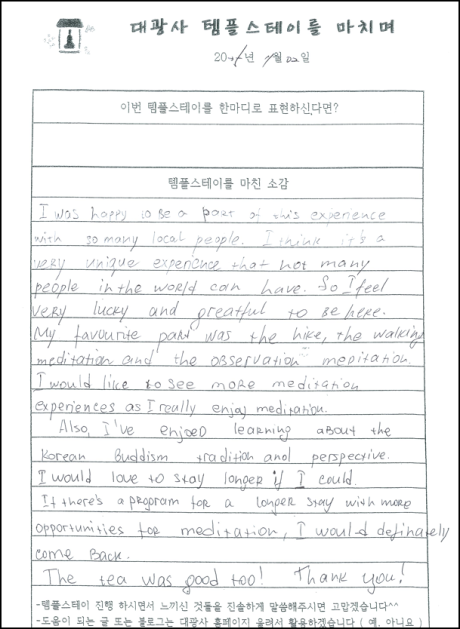 대광사 템플스테이를 마치며
20 년 월 일
이번 템플스테이를 한마디로 표현하신다면?
템플스테이를 마친 소감
I was happy to be a part of this experience
with so many local people. I think it's a
very unique experience that not many
people in the world can have. So I feel
very lucky and greatful to be here.
My favourite part was the hike, the walking
meditation and the observation meditation.
I would like to see more meditation
experiences as I really enjoy meditation.
Also, I've enjoed learning about the
Korean Buddism tradition and perspective.
I would love to stay longer if I could.
If there's a program for a longer stay with more
opportunities for meditation, I would definately
come back.
The tea was good too! Thank you!
-템플스테이 진행 하시면서 느끼신 것들을 진솔하게 말씀해주시면 고맙겠습니다^^
-도움이 되는 글 또는 블로그는 대광사 홈페이지 올려서 활용하겠습니다 ( 예, 아니요 )